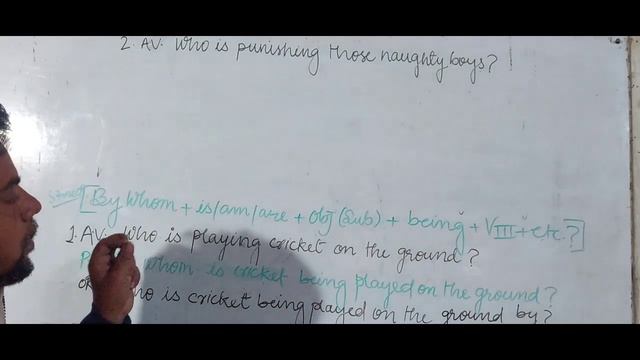 2. AV. Who is punishing those naughty boys?
[By whom + is/am/are + obj (Sub) + being + VIII + etc. ?]
1. AV. Who is playing cricket on the ground?
whom is cricket being played on the ground?
is cricket being played on the ground by?